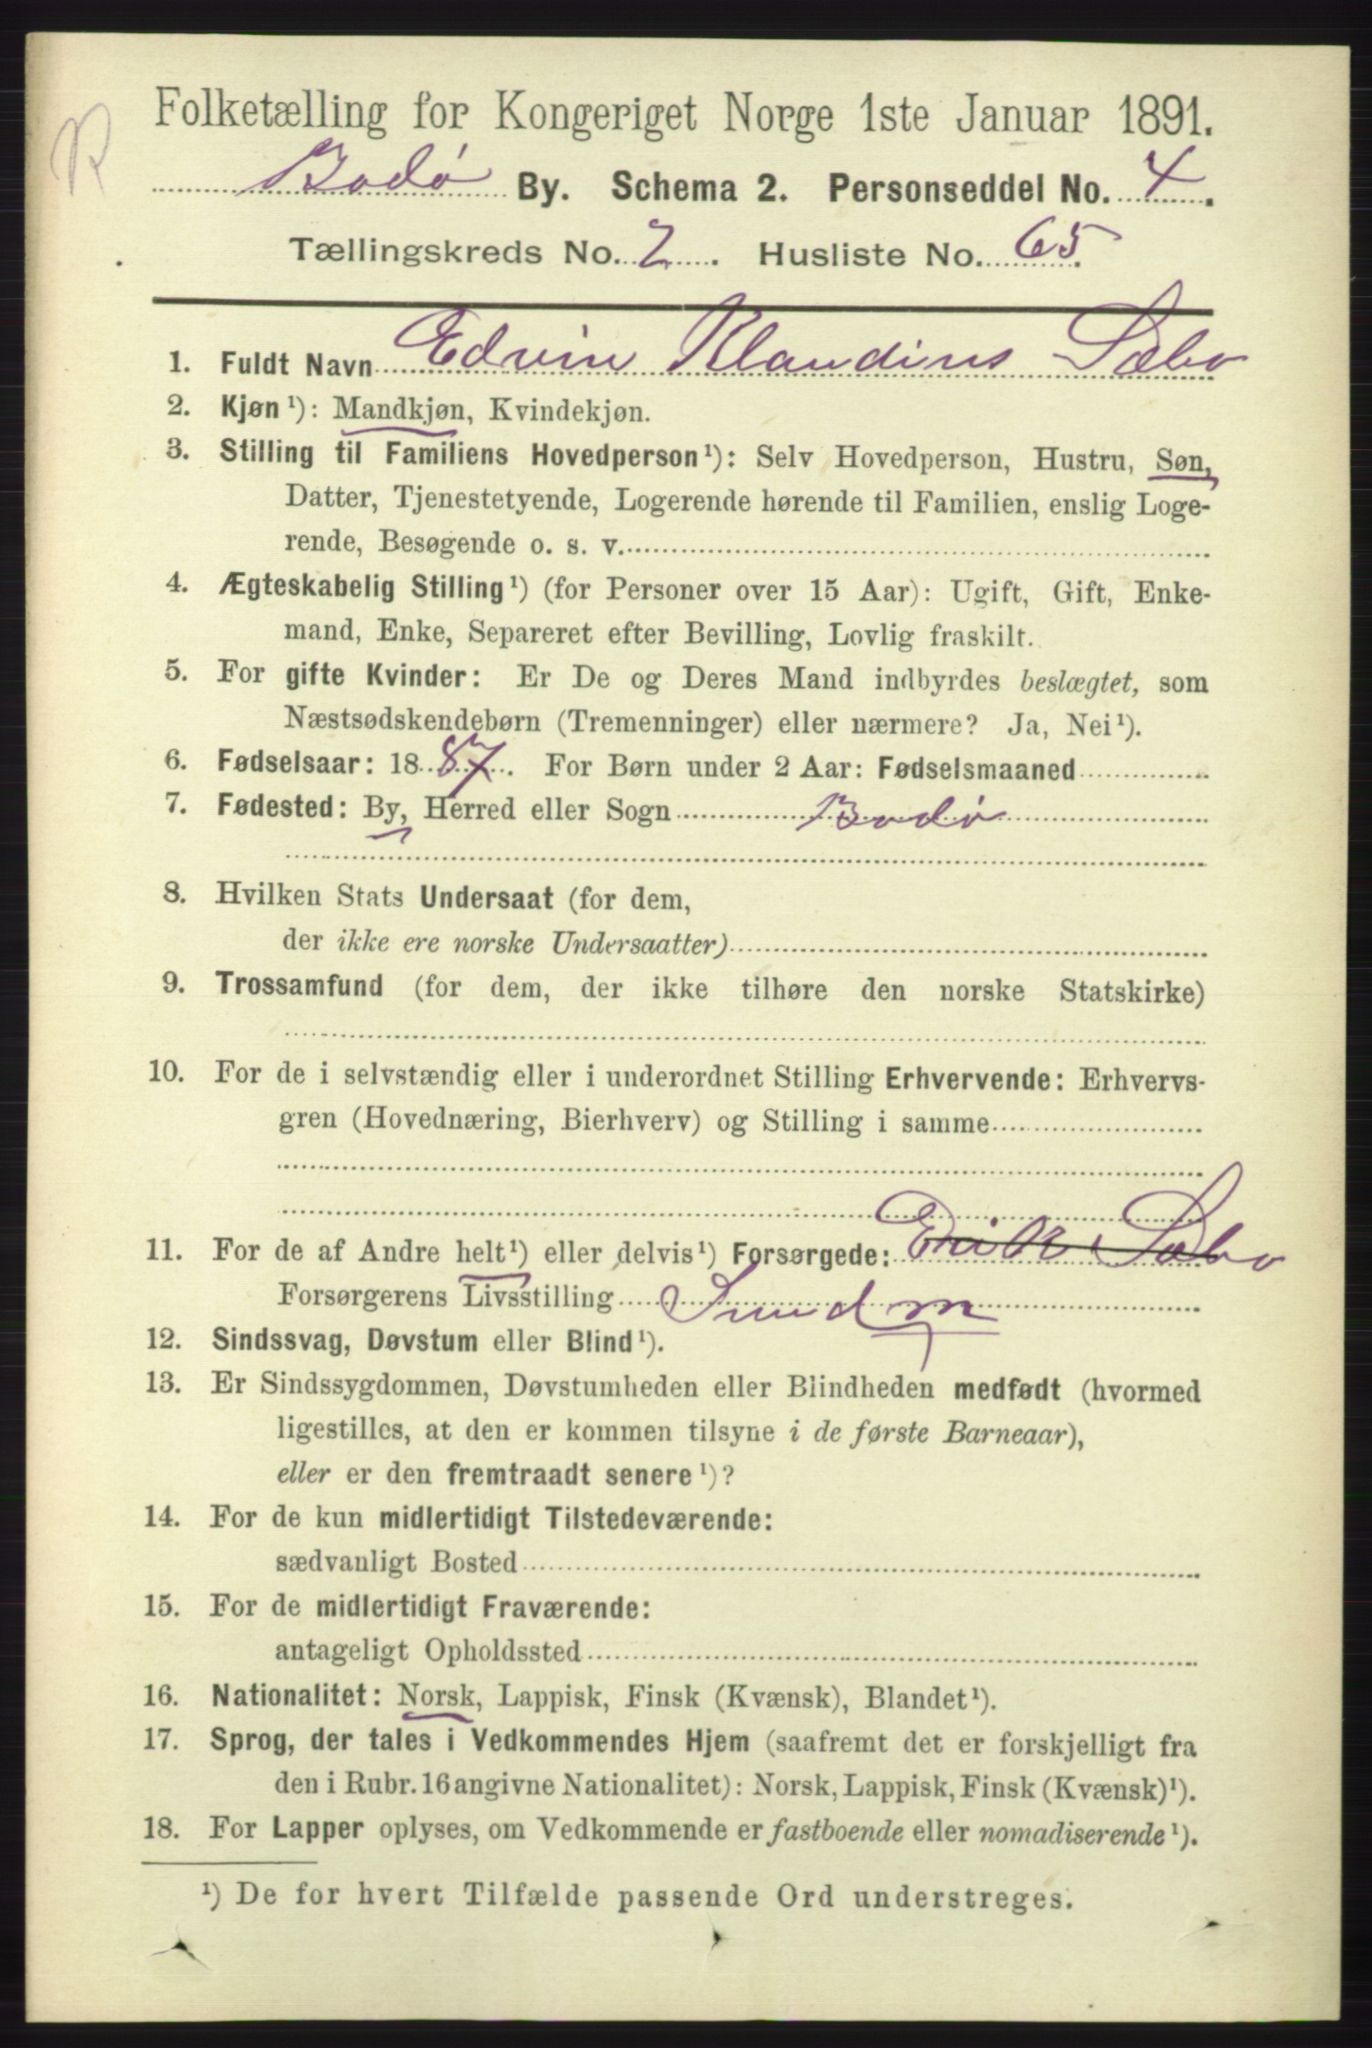 R
Folketælling for Kongeriget Norge 1ste Januar 1891.
Bodø By. Schema 2. Personseddel No. 4.
Tællingskreds No. 2. Husliste No. 65.
1. Fuldt Navn Edvin Klaudius Sæbo
2. Kjøn¹): Mandkjøn, Kvindekjøn.
3. Stilling til Familiens Hovedperson¹): Selv Hovedperson, Hustru, Søn,
Datter, Tjenestetyende, Logerende hørende til Familien, enslig Loge-
rende, Besøgende o. s. v.
4. Ægteskabelig Stilling¹) (for Personer over 15 Aar): Ugift, Gift, Enke-
mand, Enke, Separeret efter Bevilling, Lovlig fraskilt.
5. For gifte Kvinder: Er De og Deres Mand indbyrdes beslægtet, som
Næstsødskendebørn (Tremenninger) eller nærmere? Ja, Nei¹).
6. Fødselsaar: 1887. For Børn under 2 Aar: Fødselsmaaned
7. Fødested: By, Herred eller Sogn Bodø
8. Hvilken Stats Undersaat (for dem,
der ikke ere norske Undersaatter)
9. Trossamfund (for dem, der ikke tilhøre den norske Statskirke)
10. For de i selvstændig eller i underordnet Stilling Erhvervende: Erhvervs-
gren (Hovednæring, Bierhverv) og Stilling i samme
11. For de af Andre helt¹) eller delvis¹) Forsørgede: Erik Sæbo
Forsørgerens Livsstilling Smedm
12. Sindssvag, Døvstum eller Blind¹).
13. Er Sindssygdommen, Døvstumheden eller Blindheden medfødt (hvormed
ligestilles, at den er kommen tilsyne i de første Barneaar),
eller er den fremtraadt senere¹)?
14. For de kun midlertidigt Tilstedeværende:
sædvanligt Bosted
15. For de midlertidigt Fraværende:
antageligt Opholdssted
16. Nationalitet: Norsk, Lappisk, Finsk (Kvænsk), Blandet¹).
17. Sprog, der tales i Vedkommendes Hjem (saafremt det er forskjelligt fra
den i Rubr. 16 angivne Nationalitet): Norsk, Lappisk, Finsk (Kvænsk)¹).
18. For Lapper oplyses, om Vedkommende er fastboende eller nomadiserende¹).
¹) De for hvert Tilfælde passende Ord understreges.